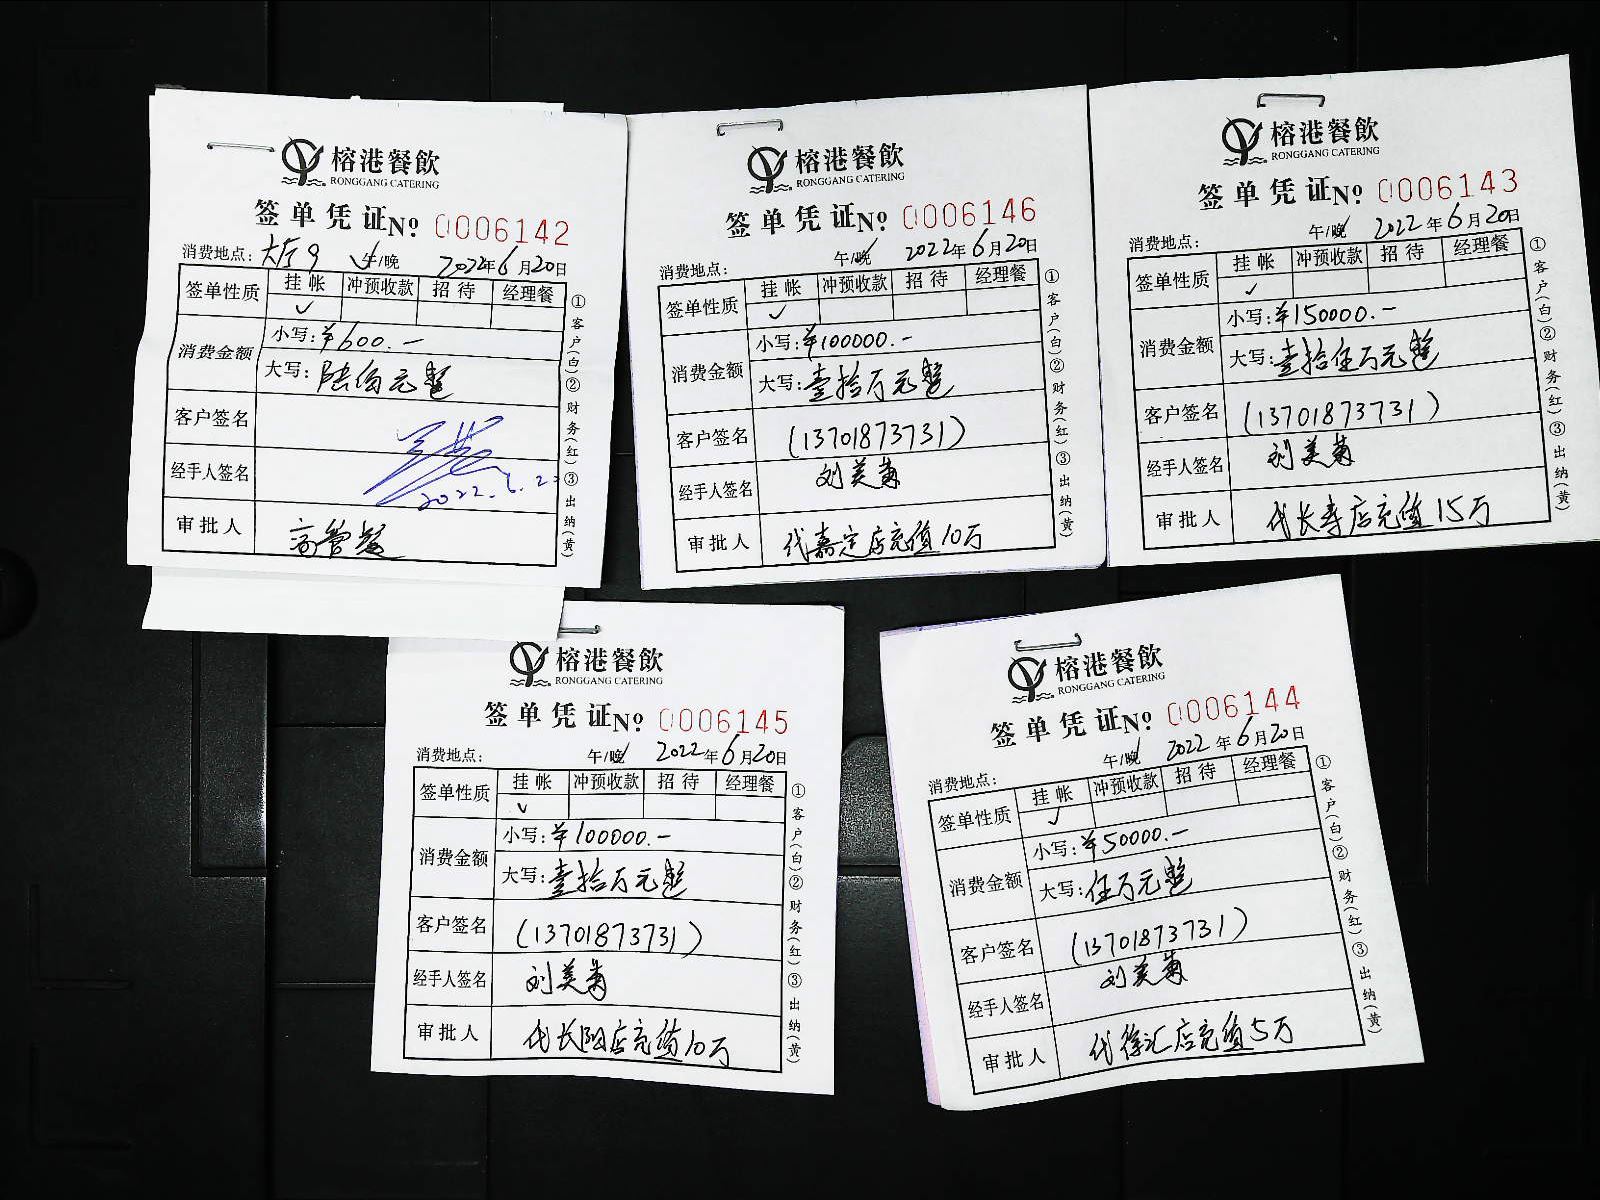 榕港餐飲
RONGGANG CATERING
签单凭证№ 0006142
消费地点：大厅9 午/晚 2022年6月20日
签单性质 挂帐 冲预收款 招待 经理餐
✓
消费金额 小写：¥600.—
大写：陆佰元整
客户签名
经手人签名
2022.6.2
审批人 高管餐
①客户(白)②财务(红)③出纳(黄)
榕港餐飲
RONGGANG CATERING
签单凭证№ 0006146
消费地点： 午/晚 2022年6月20日
签单性质 挂帐 冲预收款 招待 经理餐
✓
消费金额 小写：¥100000.—
大写：壹拾万元整
客户签名 (13701873731)
经手人签名 刘美菊
审批人 代嘉定店充值10万
①客户(白)②财务(红)③出纳(黄)
榕港餐飲
RONGGANG CATERING
签单凭证№ 0006143
消费地点： 午/晚 2022年6月20日
签单性质 挂帐 冲预收款 招待 经理餐
✓
消费金额 小写：¥150000.—
大写：壹拾伍万元整
客户签名 (13701873731)
经手人签名 刘美菊
审批人 代长寿店充值15万
①客户(白)②财务(红)③出纳(黄)
榕港餐飲
RONGGANG CATERING
签单凭证№ 0006145
消费地点： 午/晚 2022年6月20日
签单性质 挂帐 冲预收款 招待 经理餐
✓
消费金额 小写：¥100000.—
大写：壹拾万元整
客户签名 (13701873731)
经手人签名 刘美菊
审批人 代长阳店充值10万
①客户(白)②财务(红)③出纳(黄)
榕港餐飲
RONGGANG CATERING
签单凭证№ 0006144
消费地点： 午/晚 2022年6月20日
签单性质 挂帐 冲预收款 招待 经理餐
✓
消费金额 小写：¥50000.—
大写：伍万元整
客户签名 (13701873731)
经手人签名 刘美菊
审批人 代徐汇店充值5万
①客户(白)②财务(红)③出纳(黄)